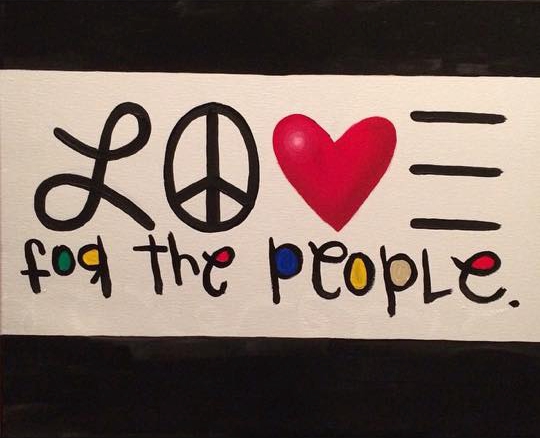 LOVE
for the people.